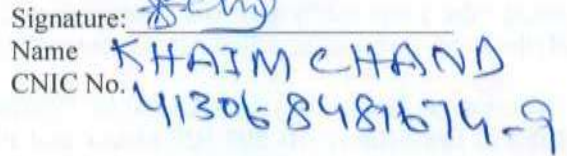 Signature:
Name KHAIM CHAND
CNIC No. 41306 8481674-9